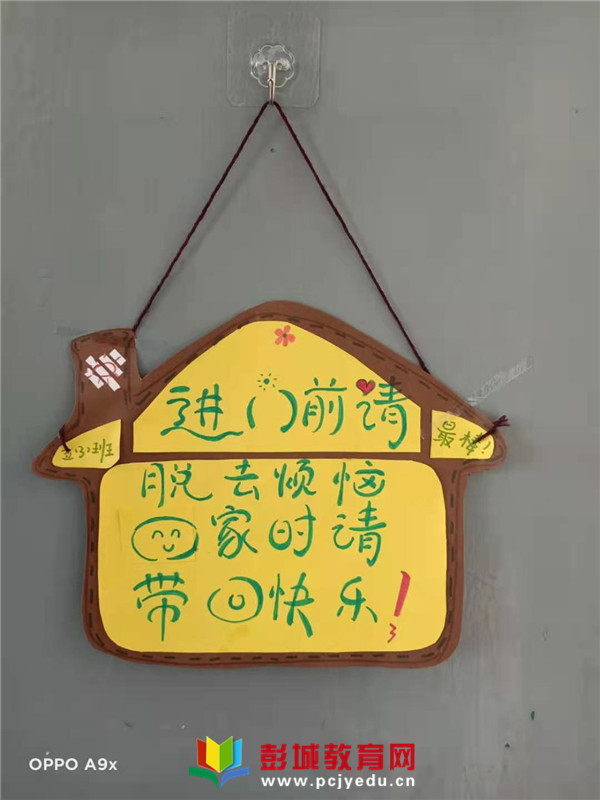 进门前请
五(3)班
最棒!
脱去烦恼
回家时请
带回快乐!
OPPO A9x
彭城教育网
www.pcjyedu.cn